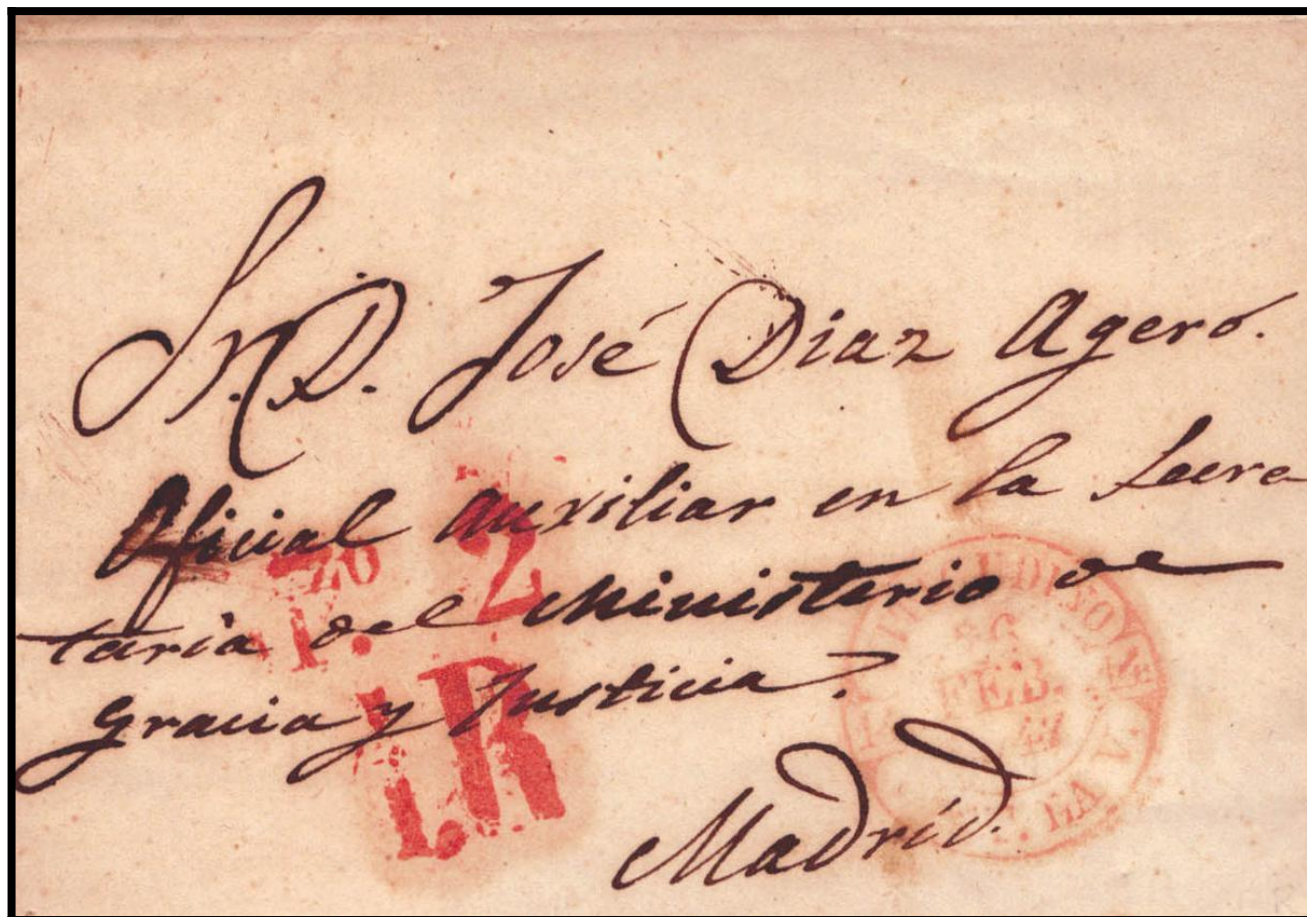 Sr. D. José Diaz Agero.
Oficial Auxiliar en la Secre
taria del Ministerio de
Gracia y Justicia.
Madrid.
2
FEB.
47
LA V.